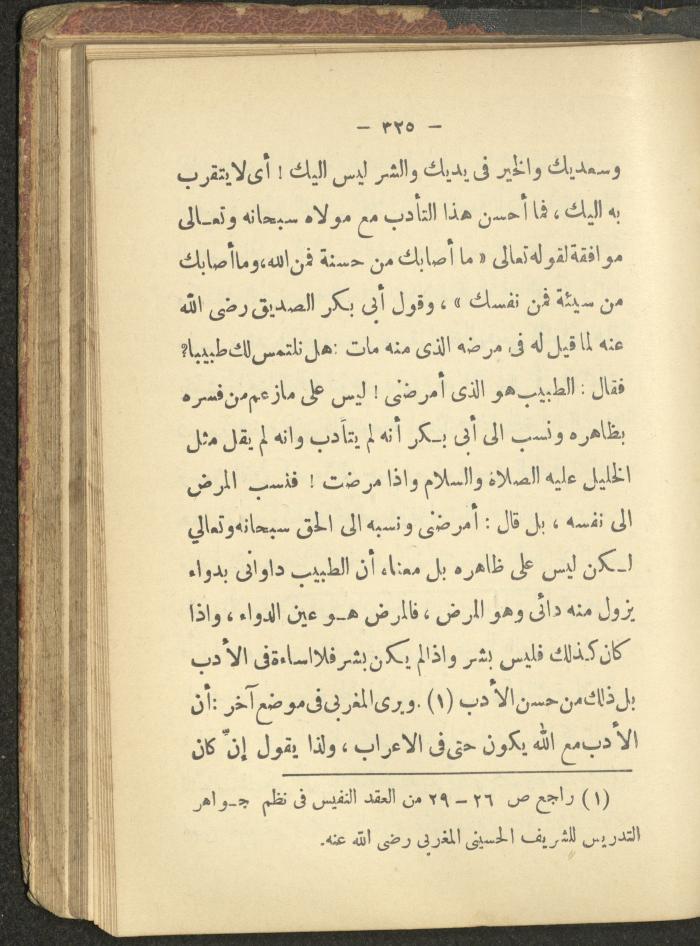 — ٣٢٥ —
وسعديك والخير فى يديك والشر ليس اليك ! أى لا يتقرب
به اليك ، فما أحسن هذا التأدب مع مولاه سبحانه وتعالى
موافقة لقوله تعالى « ما أصابك من حسنة فمن الله، وما أصابك
من سيئة فمن نفسك » ، وقول أبى بكر الصديق رضى الله
عنه لما قيل له فى مرضه الذى منه مات : هل نلتمس لك طبيبا ؟
فقال : الطبيب هو الذى أمرضنى ! ليس على مازعم من فسره
بظاهره ونسب الى أبى بكر أنه لم يتأدب وانه لم يقل مثل
الخليل عليه الصلاة والسلام واذا مرضت ! فنسب المرض
الى نفسه ، بل قال : أمرضنى ونسبه الى الحق سبحانه وتعالي
لكن ليس على ظاهره بل معناه أن الطبيب داوانى بدواء
يزول منه دائى وهو المرض ، فالمرض هو عين الدواء ، واذا
كان كذلك فليس بشر واذا لم يكن بشر فلا اساءة فى الأدب
بل ذلك من حسن الأدب (١) . ويرى المغربى فى موضع آخر : أن
الأدب مع الله يكون حتى فى الاعراب ، ولذا يقول إنّ كان
(١) راجع ص ٢٦ — ٢٩ من العقد النفيس فى نظم جواهر
التدريس للشريف الحسينى المغربى رضى الله عنه.